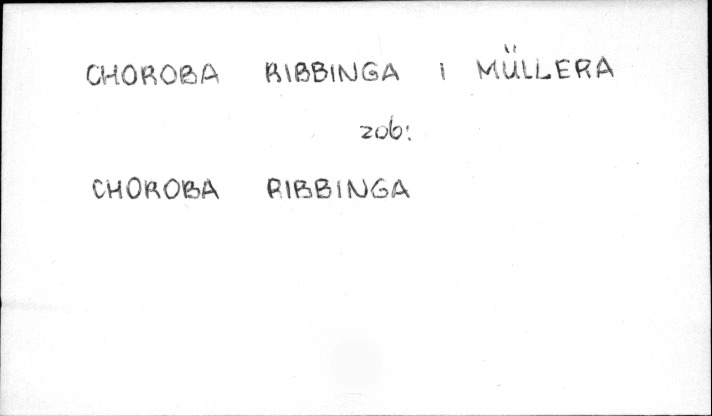 CHOROBA RIBBINGA i MÜLLERA
zob:
CHOROBA RIBBINGA